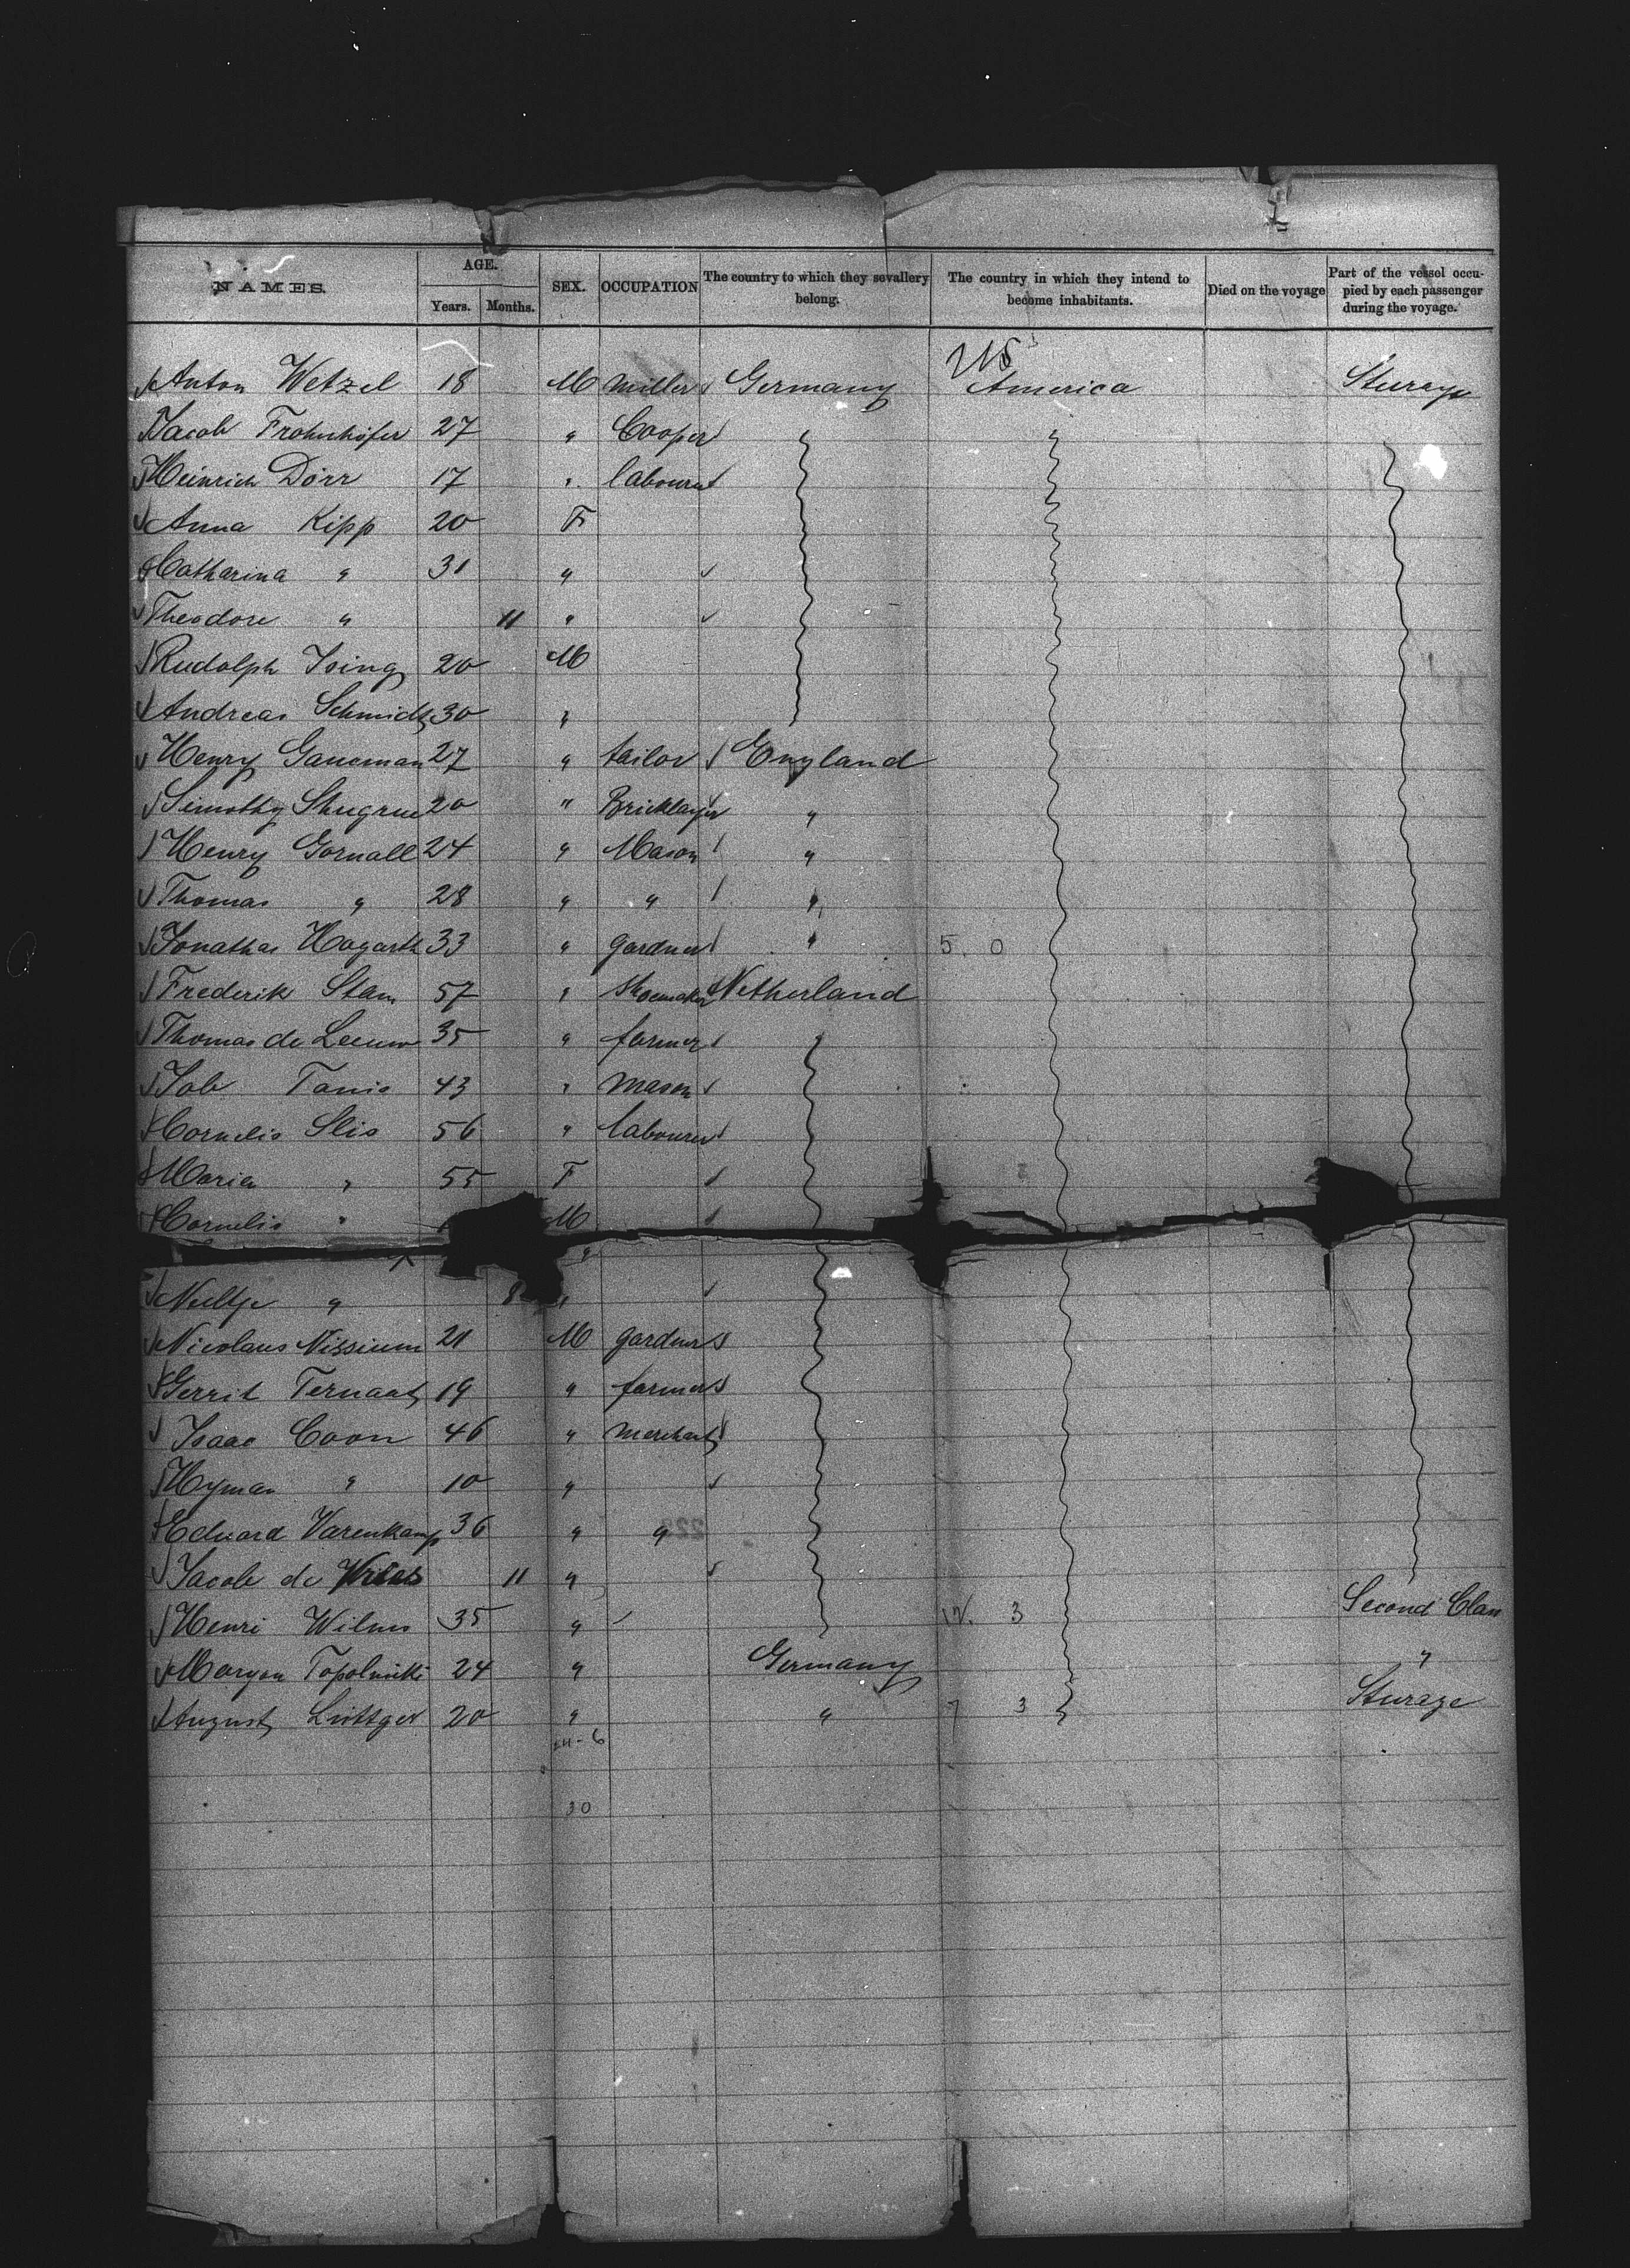 NAMES. AGE. Years. Months. SEX. OCCUPATION The country to which they sevallery belong. The country in which they intend to become inhabitants. Died on the voyage Part of the vessel occupied by each passenger during the voyage.
US
Anton Wetzel 18 M Miller Germany America Sturage
Jacob Frohnhöfer 27 " Cooper
Heinrich Dörr 17 " labourer
Anna Kipp 20 F
Catharina " 31 "
Theodore " 11 "
Rudolph Ising 20 M
Andreas Schmidt 30 "
Henry Gaucman 27 " tailor England
Timothy Shugrue 20 " Bricklayer "
Henry Gornall 24 " Mason "
Thomas " 28 " " "
Jonathan Hogarth 33 " gardner " 5. 0
Frederik Stam 57 " Shoemaker Netherland
Thomas de Leeuw 35 " farmer "
Job Tanis 43 " mason
Cornelis Slis 56 " labourer
Maria " 55 F
Cornelis " M
"
Neeltje " 8 "
Nicolaus Nissium 21 M gardner
Gerrit Ternaat 19 " farmer
Isaac Coon 46 " merchant
Hyman " 10 "
Eduard Varenkamp 36 " "
Jacob de Vries 11 "
Henri Wilms 35 " 3 Second Class
Maryan Topolnicki 24 " Germany "
August Lüttger 20 " " 7 3 Sturage
24-6
30